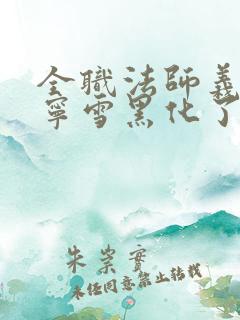 全職法師義
寧雪黑化了
朱崇實
未经同意禁止转载